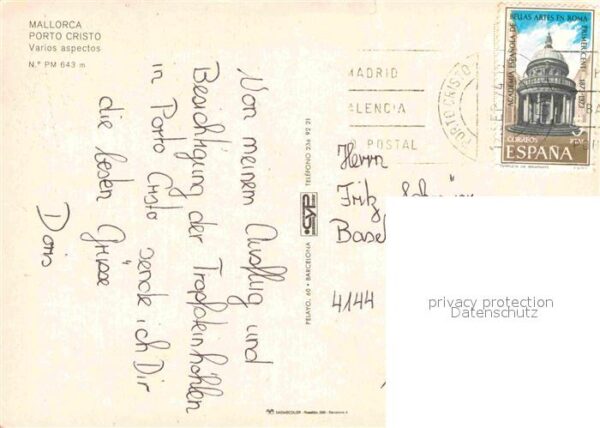 MALLORCA
PORTO CRISTO
Varios aspectos
N.º PM 643 m
Von meinem Ausflug und
Besichtigung der Tropfsteinhöhlen
in Porto Cristo sende ich Dir
die besten Grüsse
Doris
PELAYO, 60 • BARCELONA
CYP
TELEFONO 236 92 21
MADRID
VALENCIA
POSTAL
PORTO CRISTO
SEP. 74
ACADEMIA ESPAÑOLA DE BELLAS ARTES EN ROMA
PRIMER CENT. 1873-1973
CORREOS
ESPAÑA
Herrn
Fritz
Basel
4144
privacy protection
Datenschutz